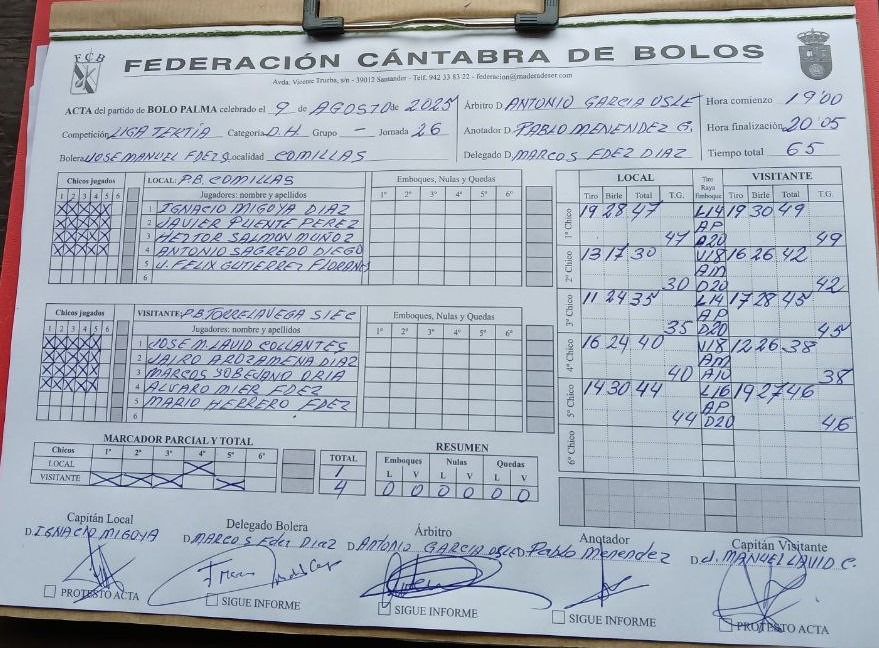 FCB
FEDERACIÓN CÁNTABRA DE BOLOS
Avda. Vicente Trueba, s/n - 39012 Santander - Telf. 942 33 83 22 - federacion@maderadeser.com
ACTA del partido de BOLO PALMA celebrado el 9 de AGOSTO de 2025
Árbitro D. ANTONIO GARCIA OSLE
Hora comienzo 19'00
Competición LIGA TERTIA Categoría D.H Grupo - Jornada 26
Anotador D. PABLO MENENDEZ G.
Hora finalización 20'05
Bolera JOSE MANUEL FDEZ Localidad COMILLAS
Delegado D. MARCOS FDEZ DIAZ
Tiempo total 65
Chicos jugados
1 2 3 4 5 6
LOCAL: P.B. COMILLAS
Jugadores: nombre y apellidos
Emboques, Nulas y Quedas
1º 2º 3º 4º 5º 6º
1 IGNACIO MIGOYA DIAZ
2 JAVIER PUENTE PEREZ
3 HECTOR SALMON MUÑOZ
4 ANTONIO SAGREDO DIEGO
5 J. FELIX GUTIERREZ FLORANES
6
Chicos jugados
1 2 3 4 5 6
VISITANTE: P.B TORRELAVEGA SIEC
Jugadores: nombre y apellidos
Emboques, Nulas y Quedas
1º 2º 3º 4º 5º 6º
1 JOSE M. LAVID COLLANTES
2 JAIRO AROZAMENA DIAZ
3 MARCOS SOBEJANO ORIA
4 ALVARO MIER FDEZ
5 MARIO HERRERO FDEZ
6
LOCAL
Tiro Raya Emboque
VISITANTE
Tiro Birle Total T.G. Tiro Birle Total T.G.
1º Chico 19 28 47 L14 19 30 49
AP
47 D20 49
2º Chico 13 17 30 V18 16 26 42
AM
30 D20 42
3º Chico 11 24 35 L14 17 28 45
AP
35 D20 45
4º Chico 16 24 40 V18 12 26 38
AM
40 38
5º Chico 14 30 44 L16 19 27 46
AP
44 D20 46
6º Chico
MARCADOR PARCIAL Y TOTAL
Chicos 1º 2º 3º 4º 5º 6º TOTAL
LOCAL X 1
VISITANTE X X X X 4
RESUMEN
Emboques Nulas Quedas
L V L V L V
0 0 0 0 0 0
Capitán Local
D. IGNACIO MIGOYA
PROTESTO ACTA
Delegado Bolera
D. MARCOS Fdez Diaz
SIGUE INFORME
Árbitro
D. ANTONIO GARCIA OSLE
SIGUE INFORME
Anotador
D. Pablo Menendez
SIGUE INFORME
Capitán Visitante
D. J. MANUEL LAVID C.
PROTESTO ACTA